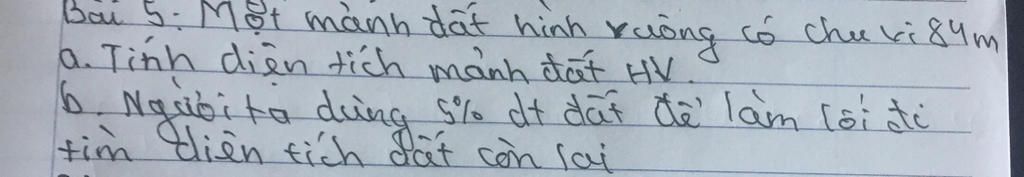 Bài 5: Một mảnh đất hình vuông có chu vi 84m
a. Tính diện tích mảnh đất HV.
b. Người ta dùng 5% dt đất để làm lối đi
tìm diện tích đất còn lại